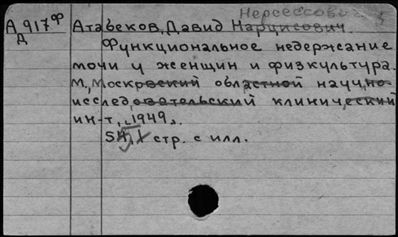 Нерсессович
А 917ф Атабеков, Давид Нарцисович.
Д Функциональное недержание
мочи у женщин и физкультура.
М, Московский областной научно-
исследовательский клинический
ин-т, 1949.
стр. с илл.